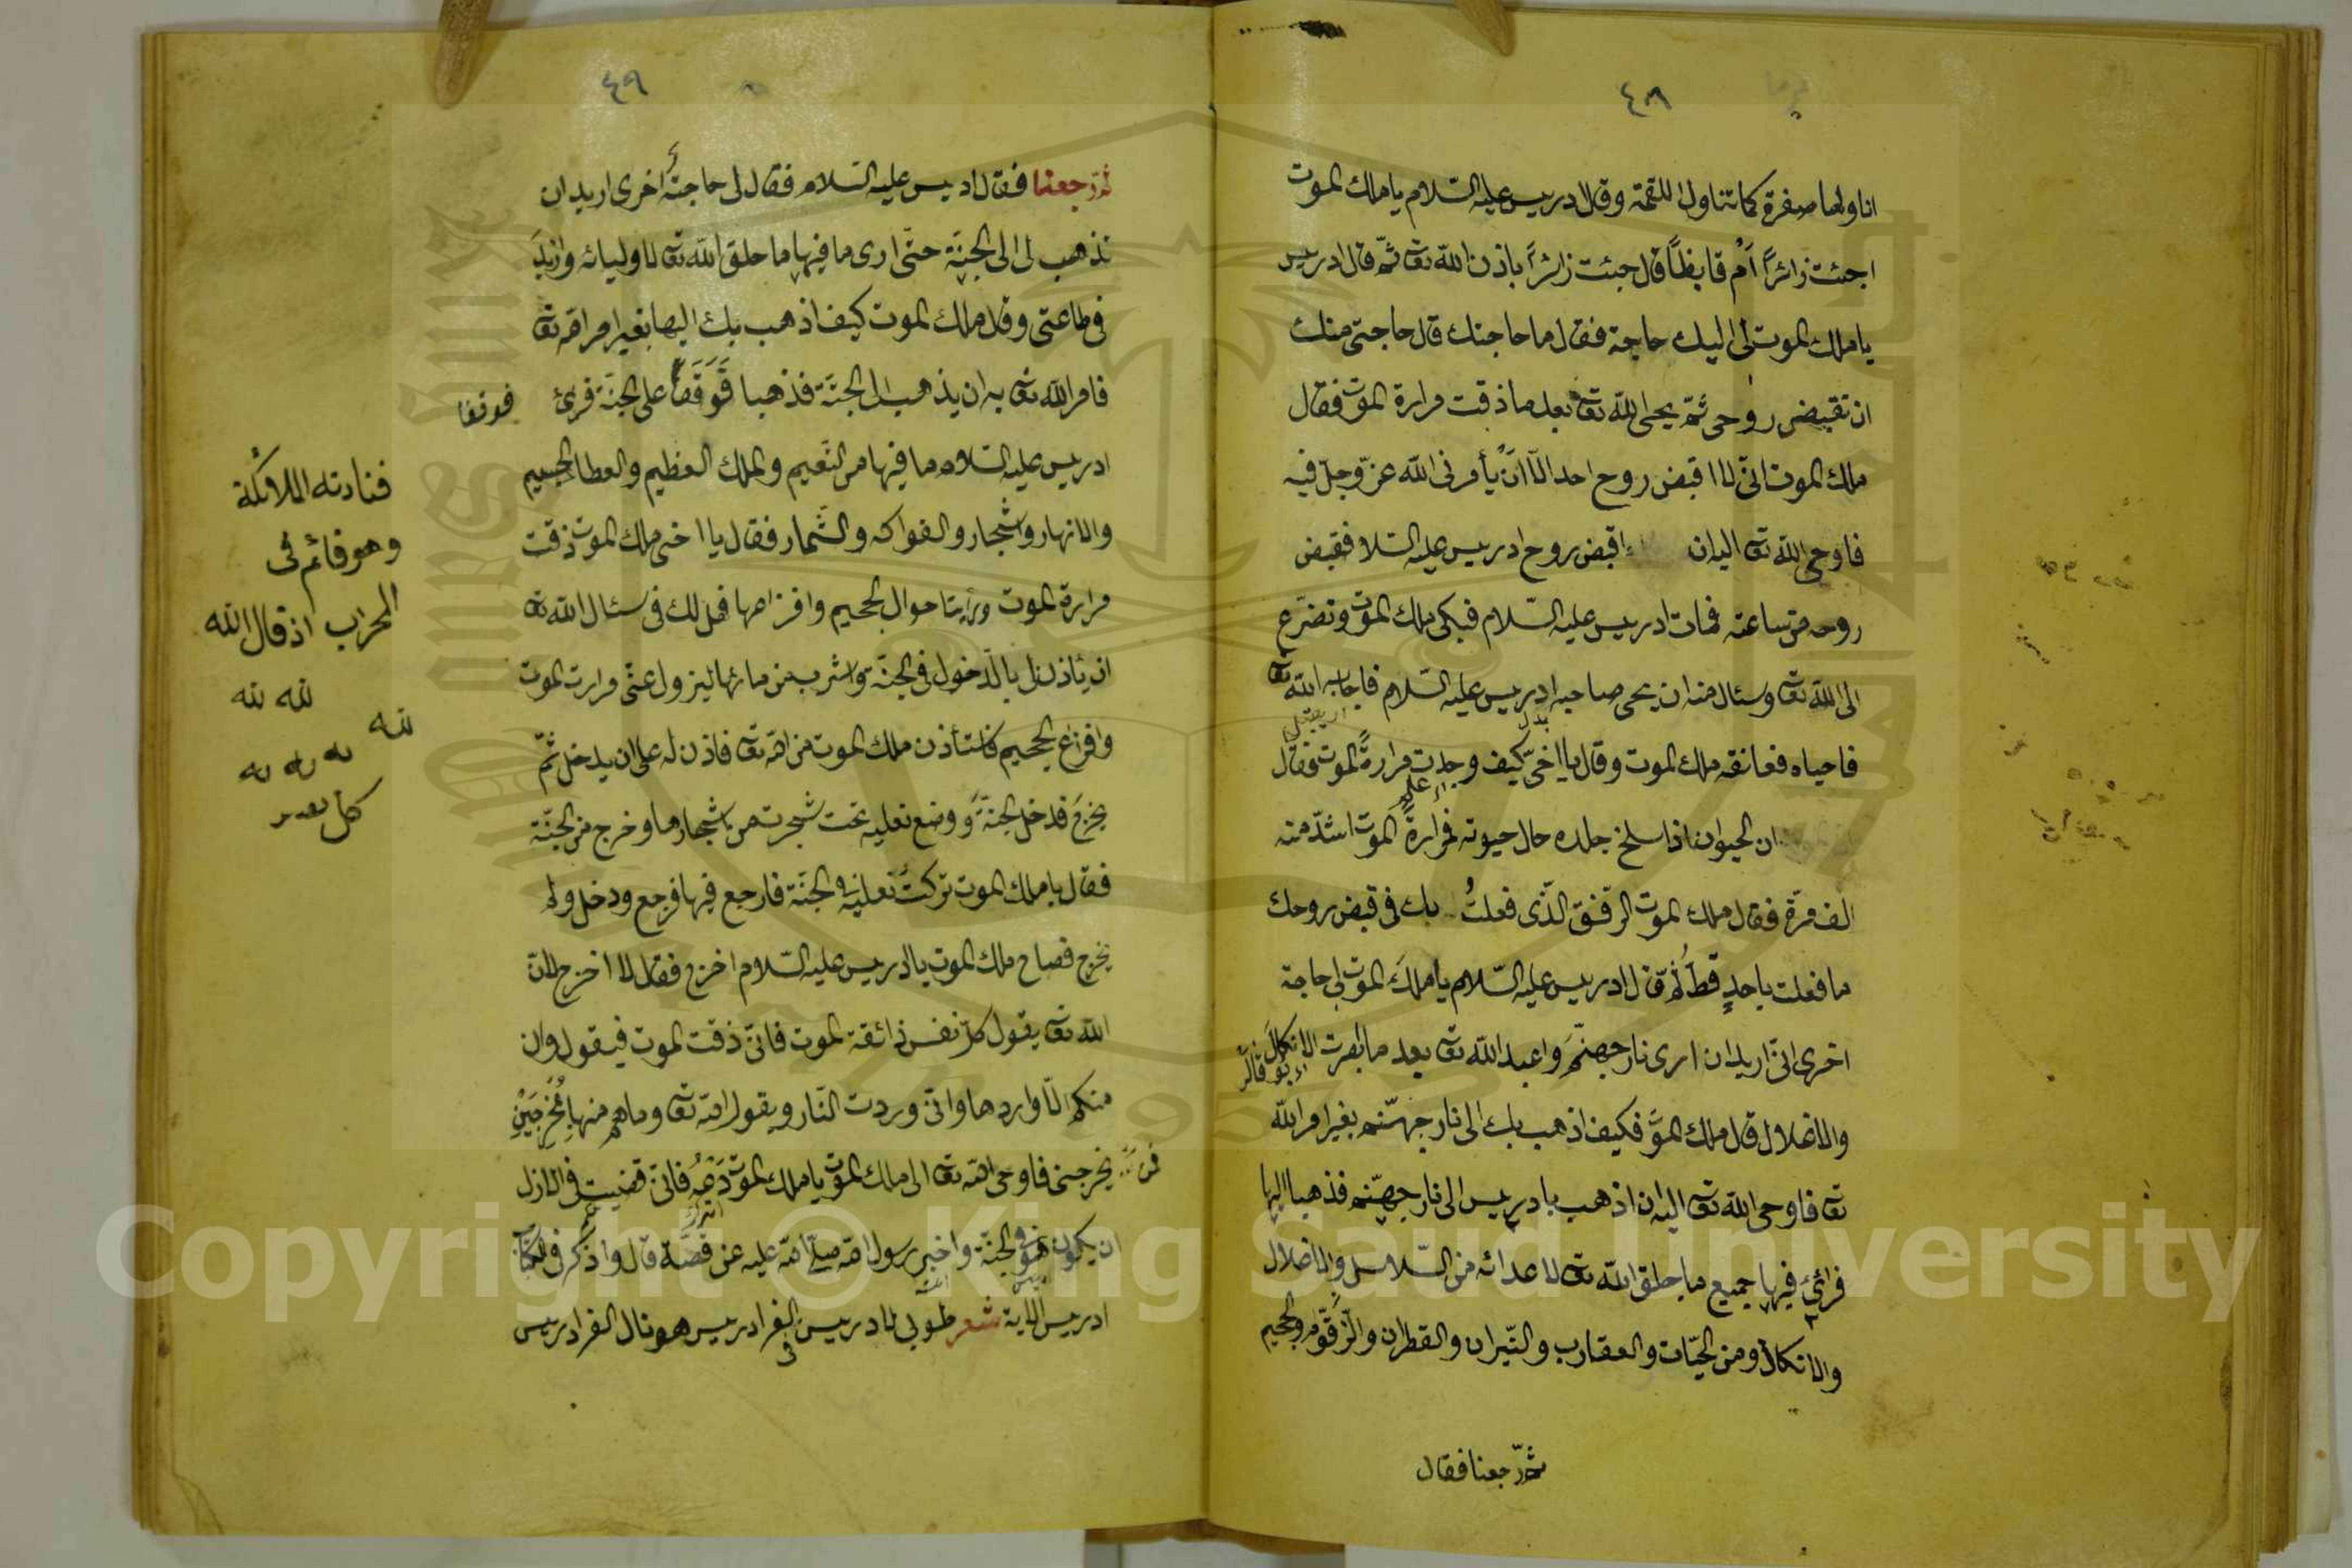 ٤٨
اناولها صفرة كما تتناول اللقمة وقال ادريس عليه السّلام يا ملك الموت
اجئت زائرًا اَم قابضًا قال جئت زائرًا باذن اللّه تعا ثمّ قال ادريس
يا ملك الموت لى اليك حاجة فقال ما حاجتك قال حاجتى منك
ان تقبض روحى ثمّ يحى اللّه تعا بعد ما ذقت مرارة الموت فقال
ملك الموت انّى لا اقبض روح احد الّا انّ يأمرنى اللّه عزّ وجلّ فيه
فاوحى اللّه تعا اليه ان اقبض روح ادريس عليه السّلا فقبض
روحه من ساعته فمات ادريس عليه السّلام فبكى ملك الموت وتضرّع
الى اللّه تعا وسئال منه ان يحى صاحبه ادريس عليه السّلام فاجابه اللّه تعا
فاحياه فعانقه ملك الموت وقال يا اخىّ كيف وجدت مرارة الموت فقال
ان الحيوان اذا سلخ جلده حال حيوته فمرارة الموت اشدّ منه
الف مرّة فقال ملك الموت الرفق الّذى فعلتُ بك فى قبض روحك
ما فعلت باحدٍ قطّ ثم قال ادريس عليه السّلام يا ملك الموت لى حاجة
اخرى انّى اريد ان ارى نار جهنّم واعبد اللّه تعا بعد ما بصرت الانكال
والاغلال قال ملك الموت فكيف اذهب بك الى نار جهنّم بغير امر اللّه
تعا فاوحى اللّه تعا اليه ان اذهب با دريس الى نار جهنّم فذهبا اليها
فرائ فيها جميع ما خلق اللّه تعا لاعدائه من السّلاسل والاغلال
والانكال ومن الحيّات والعقارب والنّيران والقطران والزّقّوم والحجيم
ثمّ رجعنا فقال
٤٩
ثمّ رجعنا فقال ادريس عليه السّلام فقال لى حاجة اخرى اريد ان
تذهب لى الى الجنّة حتّى ارى ما فيها ما خلق اللّه تعا لاوليائه وازيد
فى طاعتى وقال ملك الموت كيف اذهب بك اليها بغير امر اللّه تعا
فامر اللّه تعا به ان يذهب الى الجنّة فذهبا فَوَقَفَا على الجنّة فرئ
فوقفا
ادريس عليه السّلام ما فيها من النّعيم والملك العظيم والعطا الجسيم
والانهار واشجار والفواكه والثّمار فقال يا اخى ملك الموت ذقت
مرارة الموت ورأيت احوال الجحيم وافزاعها فهل لك فى سئال اللّه تعا
ان يئاذن لى بالدّخول فى الجنّة واشرب من مائها ليزول عنّى مرارت الموت
وافزاع الجحيم فاستأذن ملك الموت من اللّه تعا فاذن له على ان يدخل ثمّ
يخرج فدخل الجنّة ووضع نعليه تحت شجرت من اشجارها وخرج من الجنّة
فقال يا ملك الموت تركت نعلى فى الجنّة فارجع فيها فرجع ودخل ولم
يخرج فصاح ملك الموت يا ادريس عليه السّلام اخرج فقال لا اخرج لانّ
اللّه تعا يقول كلّ نفس ذائقة الموت فانّى ذقت الموت فيقول وان
منكم الّا واردها وانّى وردت النّار ويقول اللّه تعا وما هم منها بمُخْرَجِيْن
فمن يخرجنى فاوحى اللّه تعا الى ملك الموت يا ملك الموت دَعْهُ فانّى قضيت فى الازل
ان يكون هو فى الجنّة واخبر رسول اللّه صلّى اللّه عليه عن قصّة قال واذكر فى الكتاب
ادريس الاية شعر طوبى لادريس فى الفرادريس هو نال الفرادريس
فنادته الملائكة
وهو قائم فى
المحراب اذ قال الله
لله لله
لله
Copyright © King Saud University